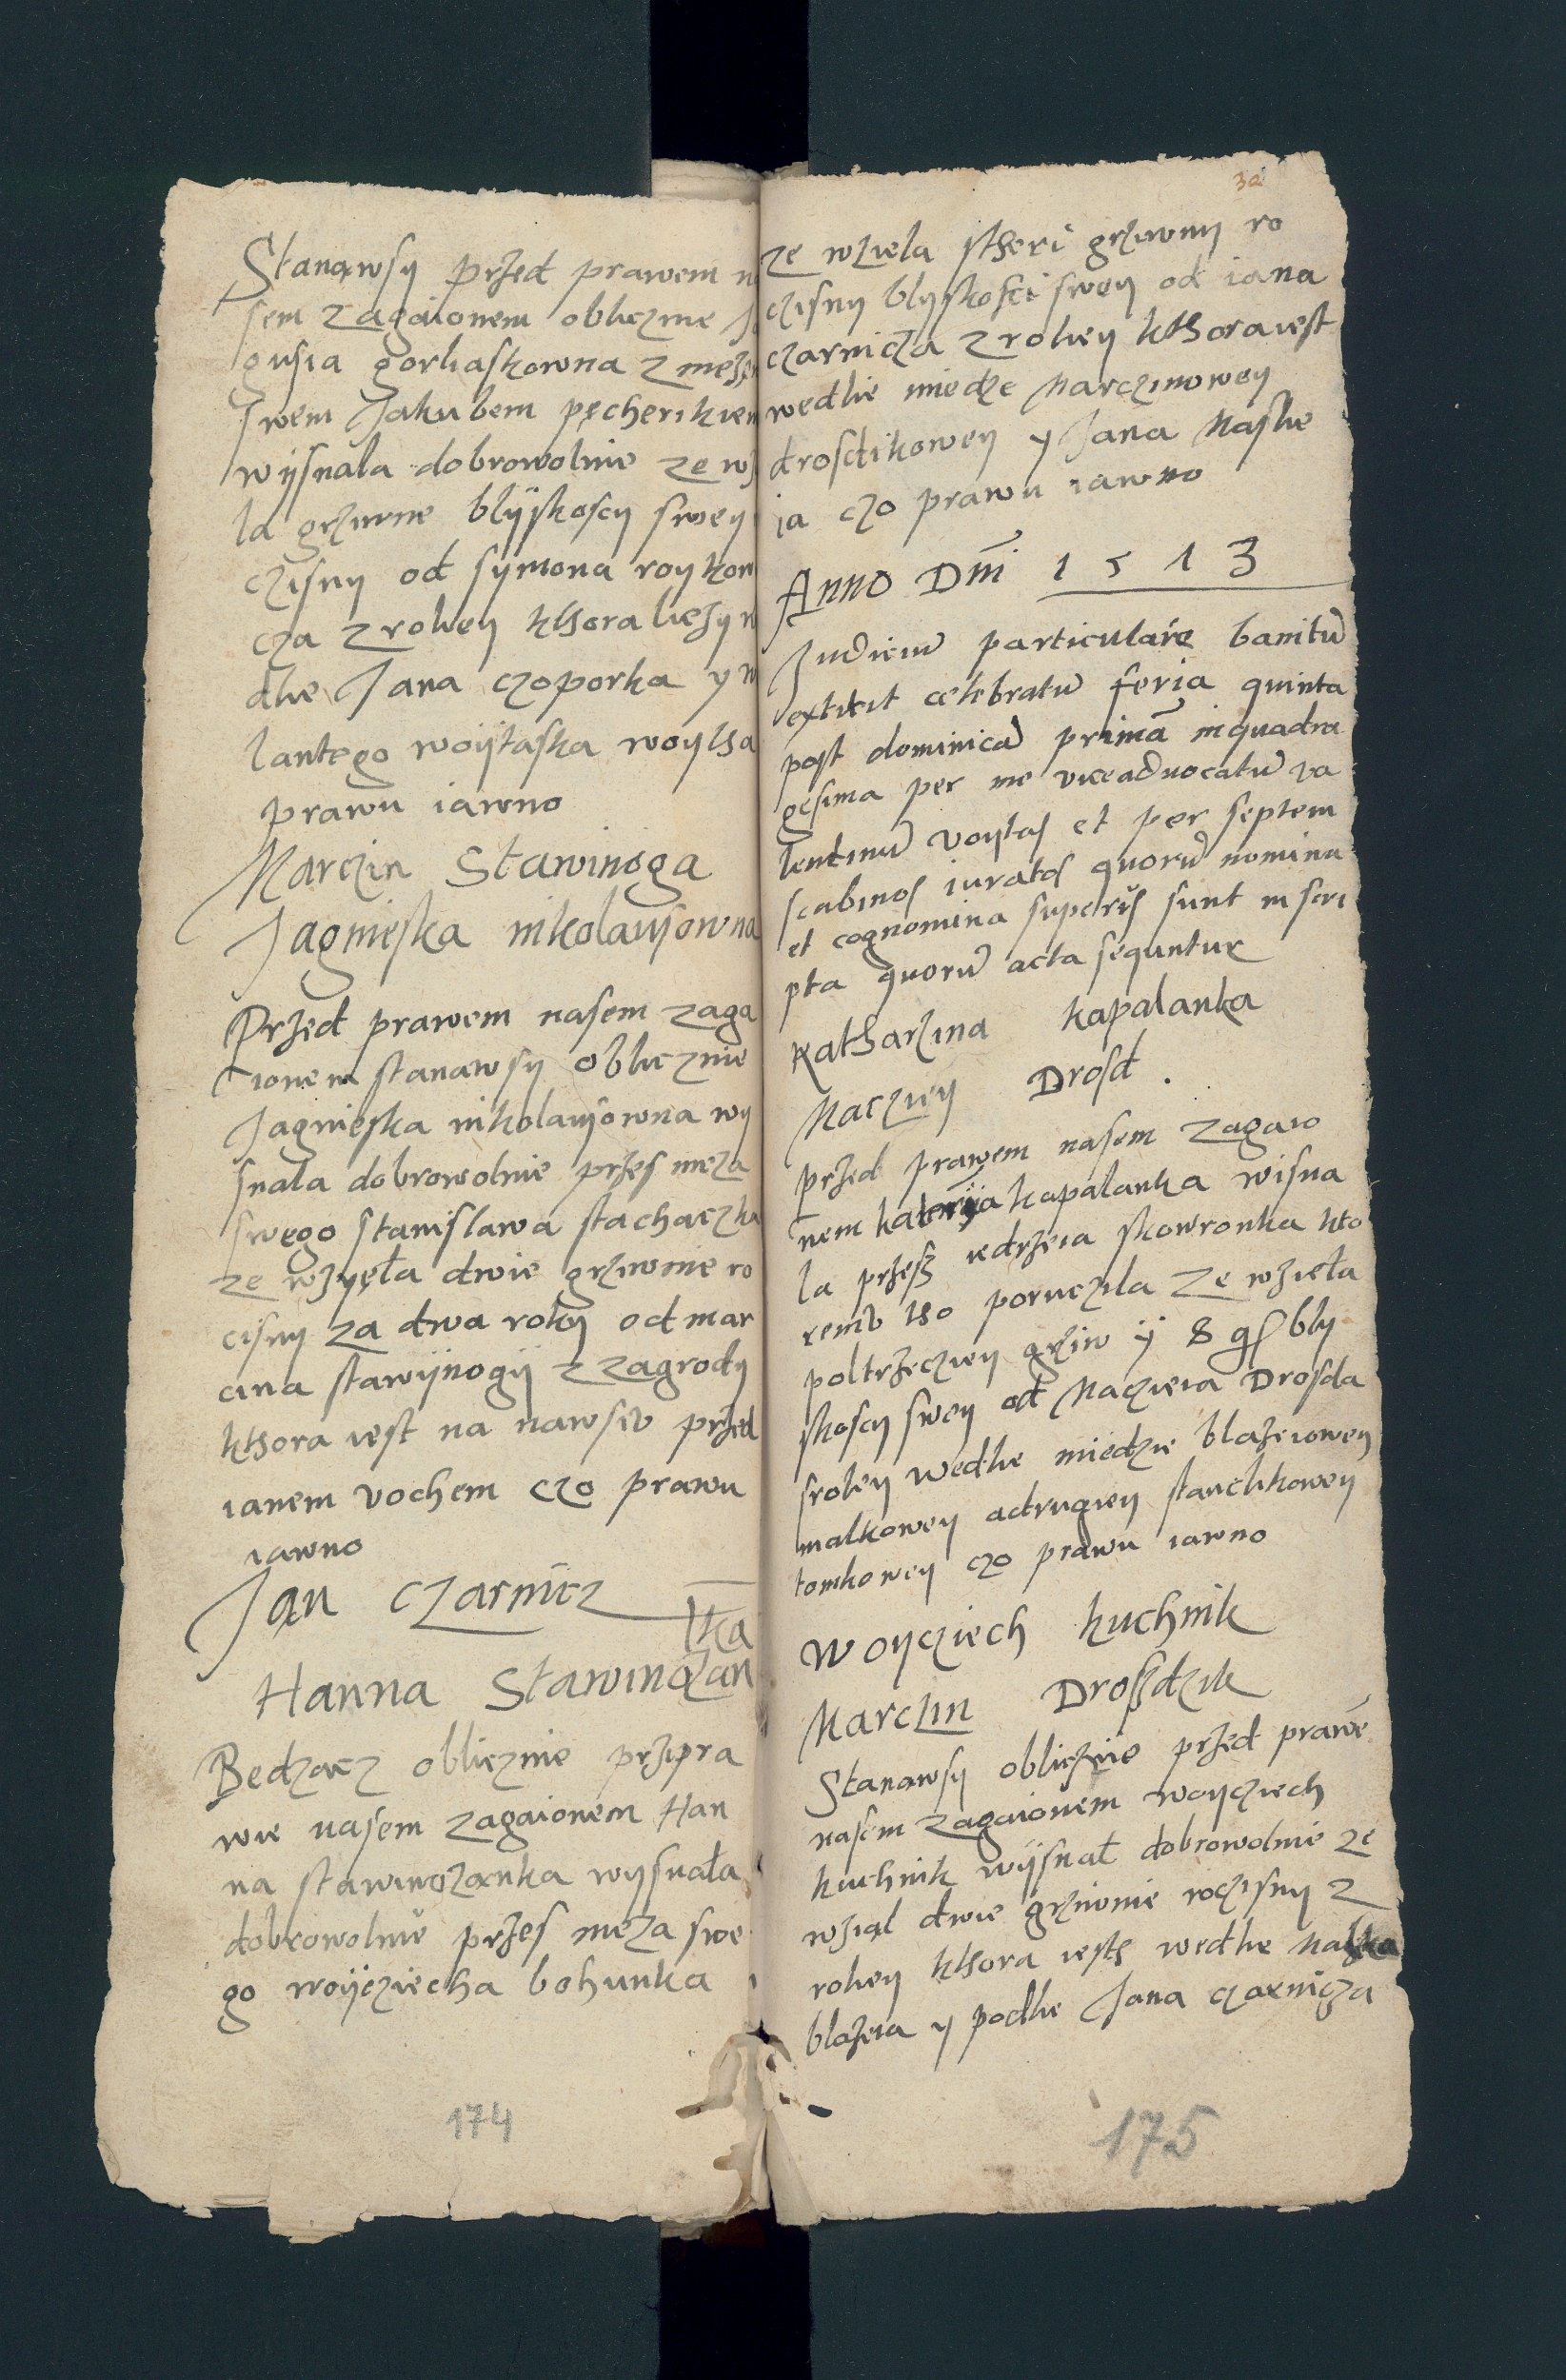 Stanąwsy przed prawem n
sem zagaionem obliczme Ja
gusia gorliaskowna z męże
swem Jakubem pęcherikiem
wysnala dobrowolnie ze wz
la grziwne blyskoscy swey
czisny od symona roykow
cza z roliey kthora liezy w
dlie Jana czoporka y w
lantego woytaska woytha
prawu iawno
Marczin Stawinoga
Jagnieska nikolayowna
Przed prawem nasem zaga
ionem stanawsy oblicznie
Jagnieska nikolayowna wy
snala dobrowolnie przes meza
swego stanislawa stachaczka
ze wzyęła dwie grziwnie ro
cisny za dwa roky od mar
cina stawynogy z zagrody
kthora iest na nawsiv przed
ianem vochem czo prawu
iawno
Jan czarnicz
ka
Hanna Stawinozan
Bedzacz oblicznie przipra
wie nasem zagaionem Han
na stawinozanka wysnała
dobrowolnie przes meza swe
go woycziecha bohunka
30
ze wziela stheri grziwny ro
czisny blyskosci swey od iana
czarnicza z roliey kthora iest
wedlie miedze Marczinowey
drosdikowey y Jana Maslie
ja czo prawu iawno
Anno Dni 1513
Judiciu particulare banitu
extitit celebratu feria quinta
post dominica prima inquadra
gesima per me viceadvocatu va
lentinu voytas et per septem
scabinos iuratos quoru nomina
et cognomina superis sunt in scri
pta quoru acta sequntur
Katharzina kapalanka
Maczwy Drosd.
przed prawem nasem zagaio
nem katerzyna kapalanka wisna
la przess iedrzeia skowronka kto
remv tho poruczila ze wzieła
poltrzecziey grziw y 8 gs bly
skoscy swey od Maczieia Drosda
sroley wedlie miedzie blazeiowey
malkowey adrugiey stauchikowey
tomkowey czo prawu iawno
Woycziech kuchnik
Marczin Drossdzik
Stanawsy oblicznie przed prawe
nasem zagaionem woycziech
kuchnik wysnał dobrowolnie ze
wział dwie grziwnie roczisny z
roliey kthora iesth wedlie Malka
blazeia y podlie Jana czarnicza
174
175